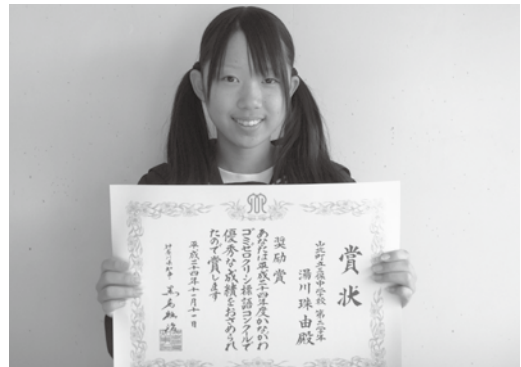 賞状
山北町立三保中学校 第三学年
湯川珠由殿
奨励賞
あなたは平成二十四年度かながわ
ゴミゼロクリーン標語コンクールで
優秀な成績をおさめられ
たので賞します
平成二十四年十一月十一日